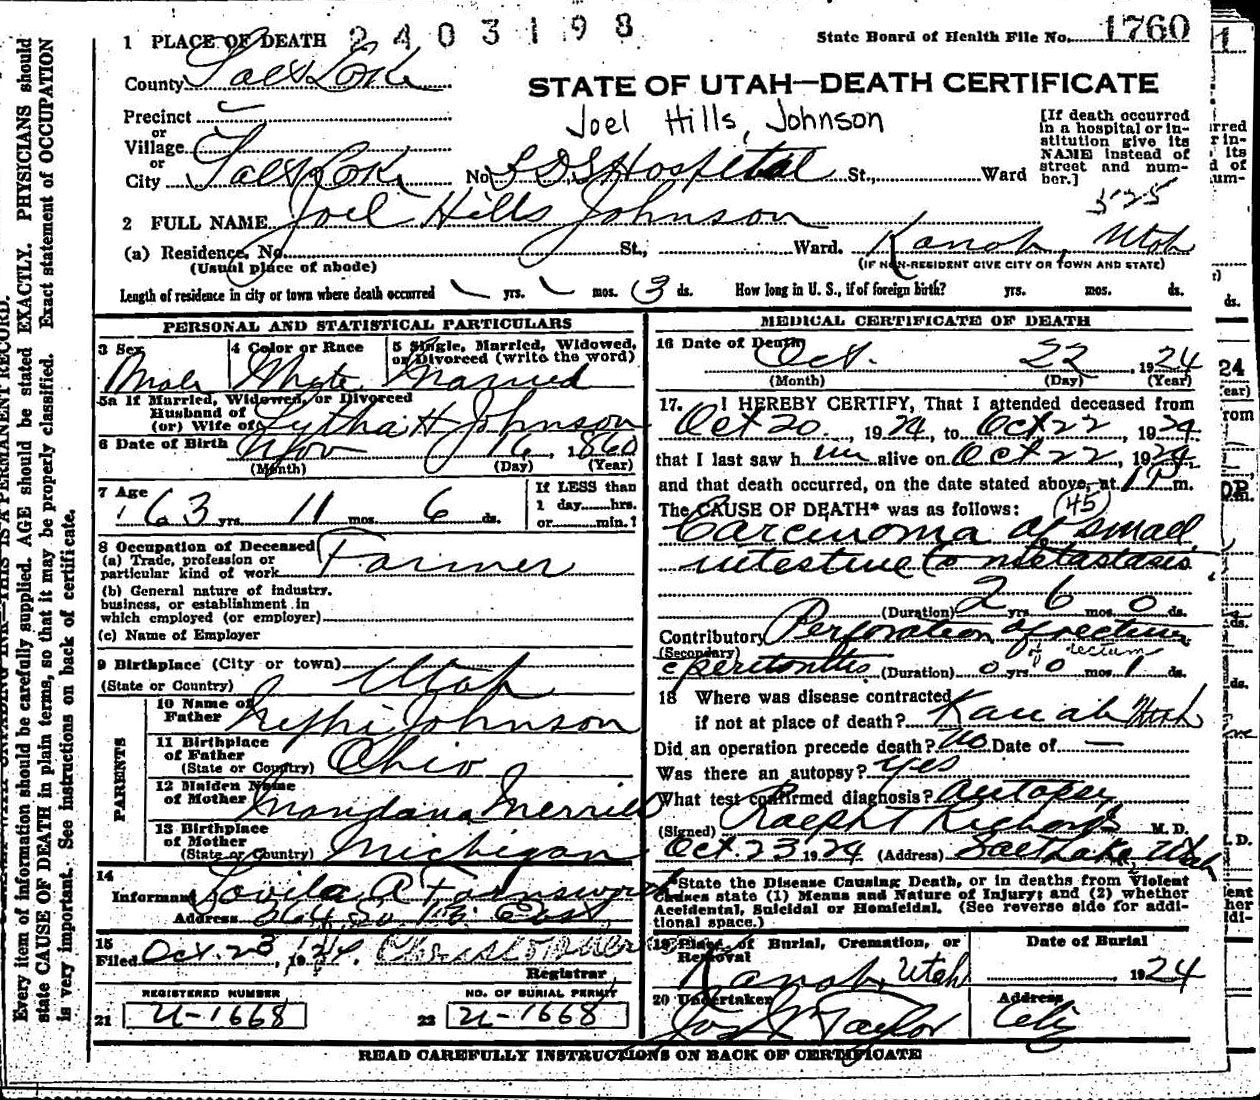 1 PLACE OF DEATH 2403198
State Board of Health File No. 1760
County Salt Lake
STATE OF UTAH—DEATH CERTIFICATE
Precinct
or
Village
or
City Salt Lake No. LDS Hospital St., Ward
Joel Hills, Johnson
[If death occurred
in a hospital or in-
stitution give its
NAME instead of
street and num-
ber.]
325
2 FULL NAME Joel Hills Johnson
(a) Residence, No. St., Ward. Kanab, Utah
(Usual place of abode) (IF NON-RESIDENT GIVE CITY OR TOWN AND STATE)
Length of residence in city or town where death occurred yrs. mos. 3 ds. How long in U. S., if of foreign birth? yrs. mos. ds.
PERSONAL AND STATISTICAL PARTICULARS
3 Sex 4 Color or Race 5 Single, Married, Widowed,
or Divorced (write the word)
Male White Married
5a If Married, Widowed, or Divorced
Husband of
(or) Wife of Lytha H Johnson
6 Date of Birth Nov 16, 1860
(Month) (Day) (Year)
7 Age 63 yrs 11 mos 6 ds.
If LESS than
1 day hrs.
or min.?
8 Occupation of Deceased
(a) Trade, profession or
particular kind of work Farmer
(b) General nature of industry,
business, or establishment in
which employed (or employer)
(c) Name of Employer
9 Birthplace (City or town)
(State or Country) Utah
PARENTS
10 Name of
Father Nephi Johnson
11 Birthplace
of Father
(State or Country) Ohio
12 Maiden Name
of Mother Mandana Merrill
13 Birthplace
of Mother
(State or Country) Michigan
14
Informant Lovila A Farnsworth
Address 264 So 16 East
15
Filed Oct. 23, 1924.
Registrar
REGISTERED NUMBER NO. OF BURIAL PERMIT
21 U-1668 22 U-1668
MEDICAL CERTIFICATE OF DEATH
16 Date of Death Oct. 22, 1924
(Month) (Day) (Year)
17. I HEREBY CERTIFY, That I attended deceased from
Oct 20, 1924, to Oct 22, 1924
that I last saw him alive on Oct 22, 1924
and that death occurred, on the date stated above, at 1 P m.
The CAUSE OF DEATH* was as follows: (45)
Carcinoma of small
intestine c metastasis
(Duration) 2 yrs 6 mos 0 ds.
Contributory Perforation of rectum
(Secondary) of rectum
c peritonitis (Duration) 0 yrs 0 mos 1 ds.
18 Where was disease contracted
if not at place of death? Kanab Utah
Did an operation precede death? No Date of —
Was there an autopsy? yes
What test confirmed diagnosis? Autopsy
(Signed) Ralph T Richards M. D.
Oct. 23 1924 (Address) Salt Lake, Utah
*State the Disease Causing Death, or in deaths from Violent
Causes state (1) Means and Nature of Injury; and (2) whether
Accidental, Suicidal or Homicidal. (See reverse side for addi-
tional space.)
19 Place of Burial, Cremation, or
Removal
Kanab, Utah
Date of Burial
1924
20 Undertaker Address
Jos Wm Taylor City
READ CAREFULLY INSTRUCTIONS ON BACK OF CERTIFICATE
Every item of information should be carefully supplied. AGE should be stated EXACTLY. PHYSICIANS should
state CAUSE OF DEATH in plain terms, so that it may be properly classified. Exact statement of OCCUPATION
is very important. See instructions on back of certificate.